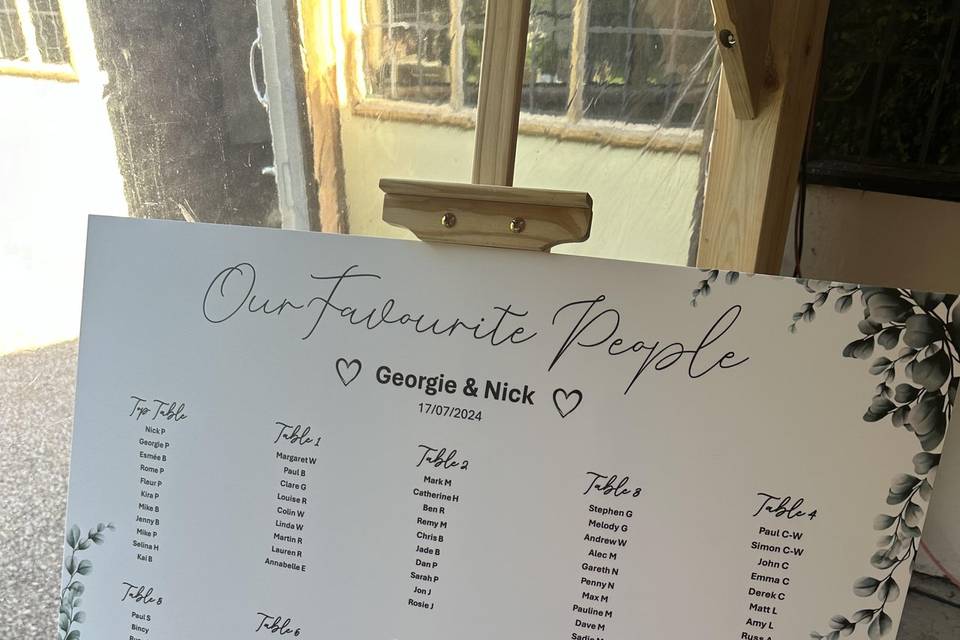 Our Favourite People
Georgie & Nick
17/07/2024
Top Table
Nick P
Georgie P
Esmée B
Rome P
Fleur P
Kira P
Mike B
Jenny B
Mike P
Selina H
Kai B
Table 1
Margaret W
Paul B
Clare G
Louise R
Colin W
Linda W
Martin R
Lauren R
Annabelle E
Table 2
Mark M
Catherine H
Ben R
Remy M
Chris B
Jade B
Dan P
Sarah P
Jon J
Rosie J
Table 3
Stephen G
Melody G
Andrew W
Alec M
Gareth N
Penny N
Max M
Pauline M
Dave M
Sadie M
Table 4
Paul C-W
Simon C-W
John C
Emma C
Derek C
Matt L
Amy L
Russ A
Table 5
Paul S
Bincy
Table 6